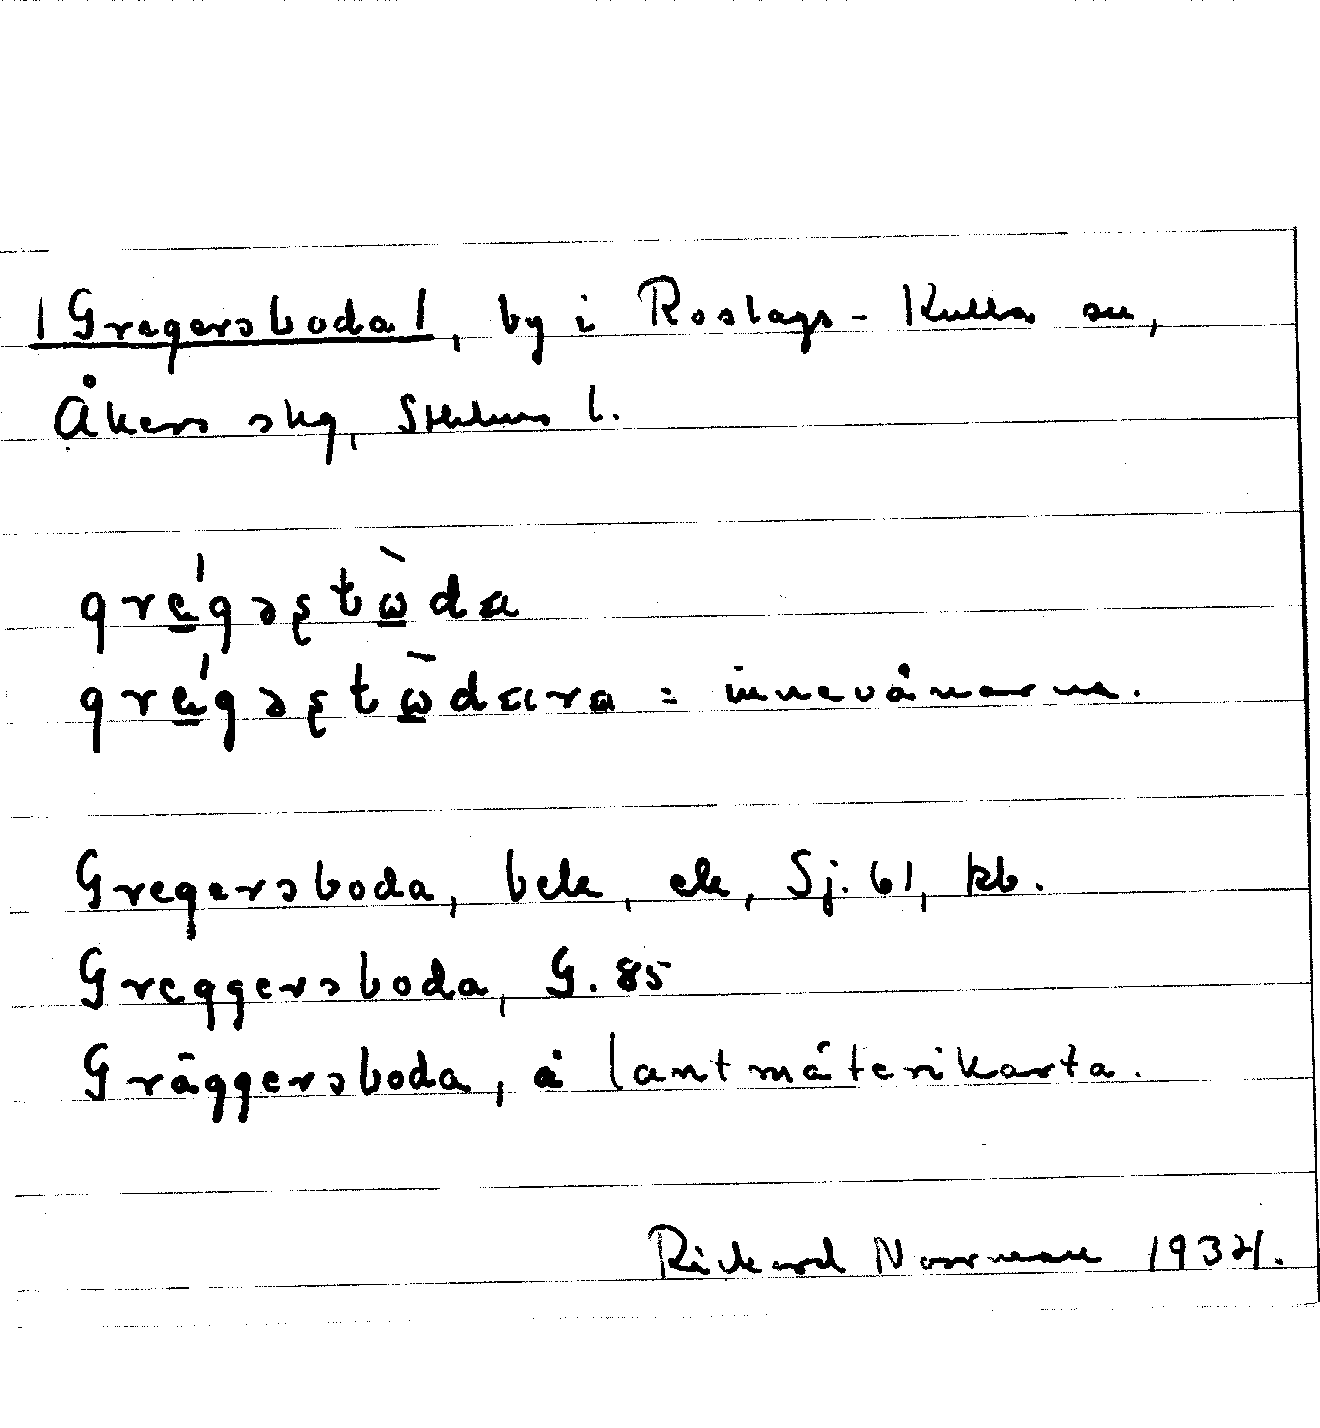 |Gregersboda|, by i Roslags-Kulla sn,
Åkers skg, Sthlms l.
gré̲gəʂtὼ̲da
gré̲gəʂtὼ̲dara = innevånarna.
Gregersboda, bck, ck, Sj. 61, kb.
Greggersboda, G. 85
Gräggersboda, å lantmäterikarta.
Rickard Norrman 1934.